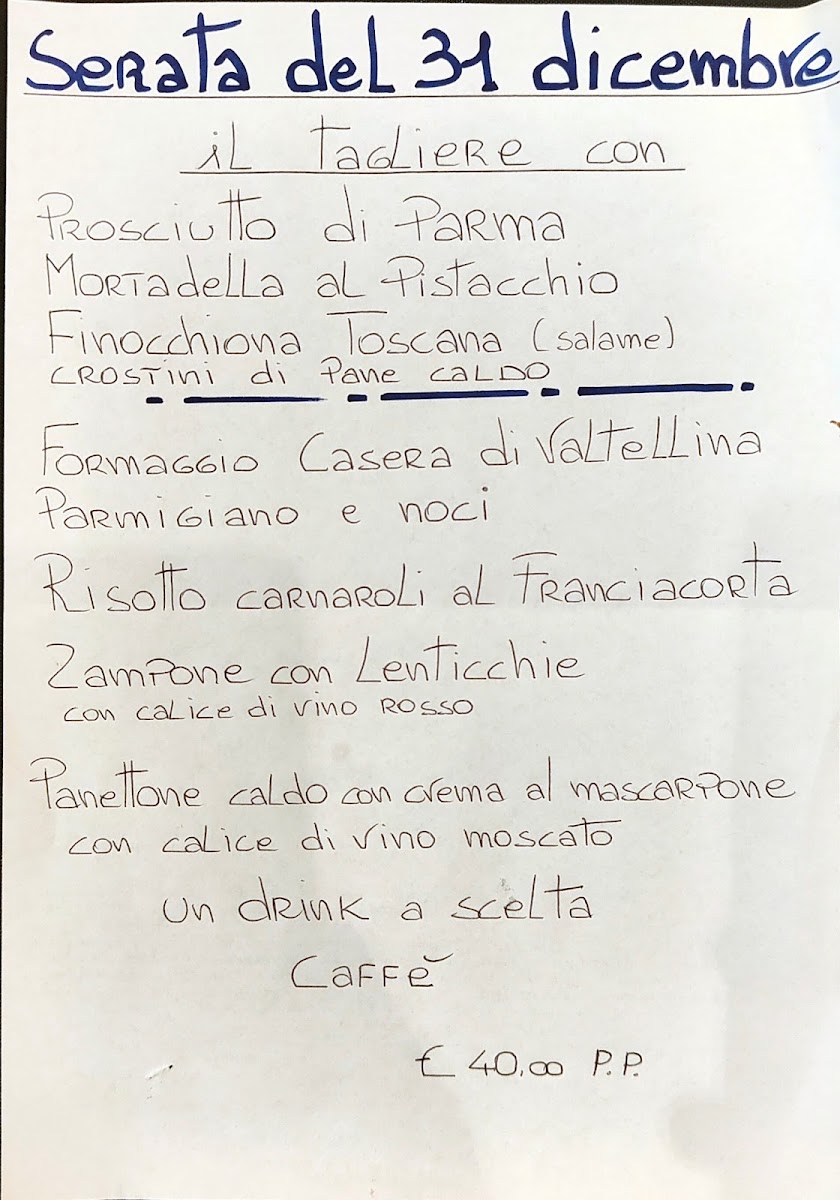 Serata del 31 dicembre
il Tagliere con
Prosciutto di Parma
Mortadella al Pistacchio
Finocchiona Toscana (salame)
crostini di Pane caldo
Formaggio Casera di Valtellina
Parmigiano e noci
Risotto carnaroli al Franciacorta
Zampone con Lenticchie
con calice di vino rosso
Panettone caldo con crema al mascarpone
con calice di vino moscato
un drink a scelta
Caffè
€ 40,00 P.P.